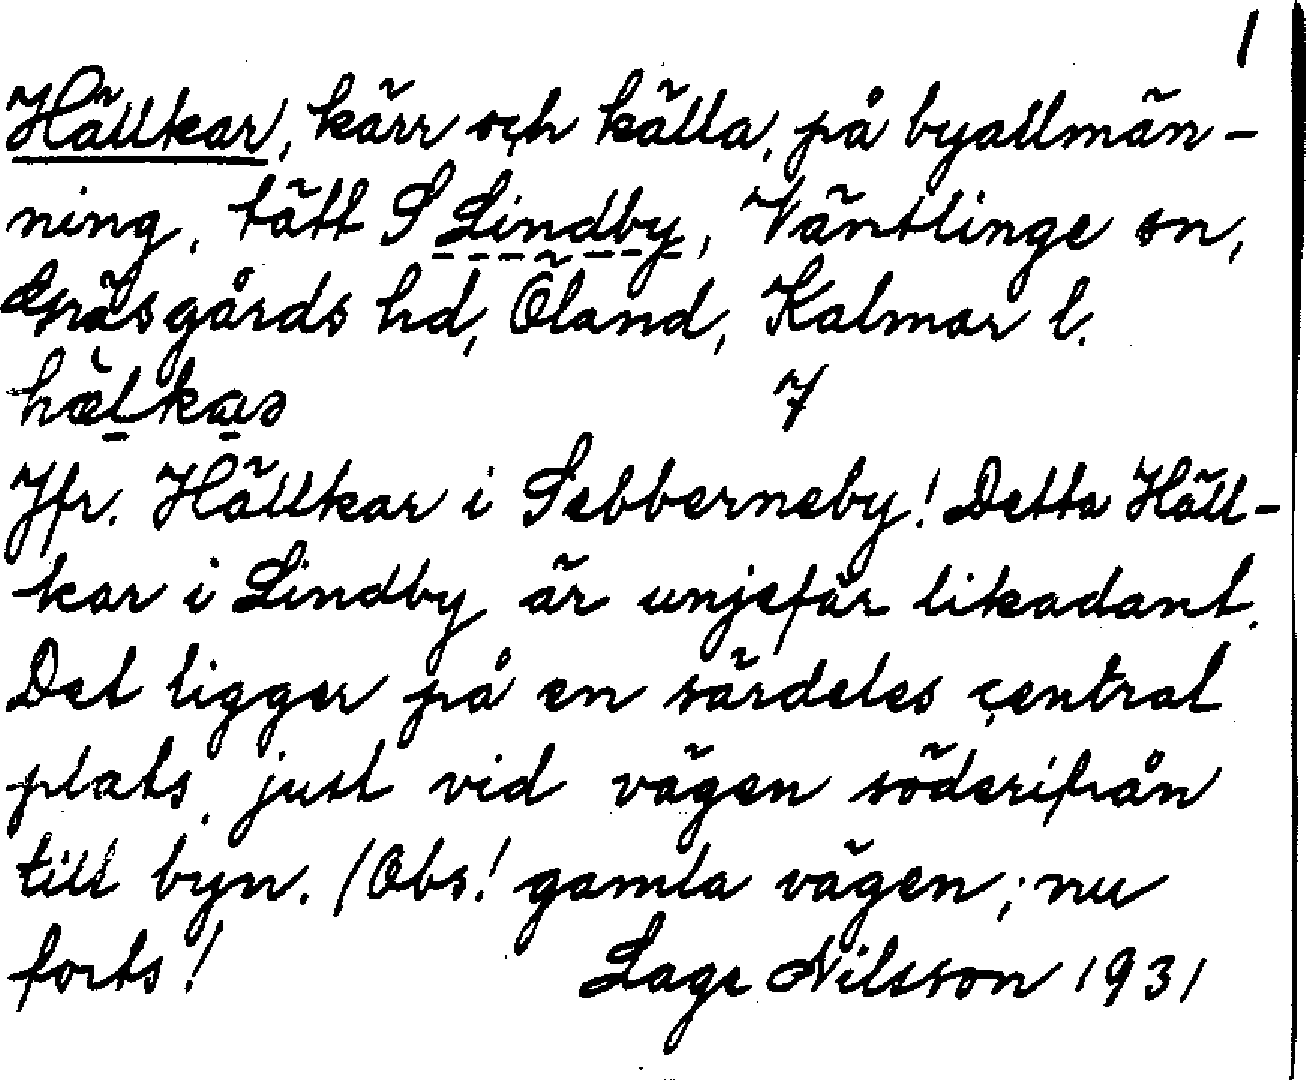 1
Hällkar, kärr och källa, på byallmän-
ning, tätt S Lindby, Väntlinge sn,
Gräsgårds hd, Öland, Kalmar l.
7
Jfr. Hällkar i Sebberneby! Detta Häll-
kar i Lindby är unjefär likadant.
Det ligger på en särdeles central
plats, just vid vägen söderifrån
till byn. (Obs! gamla vägen; nu
forts! Lage Nilsson 1931